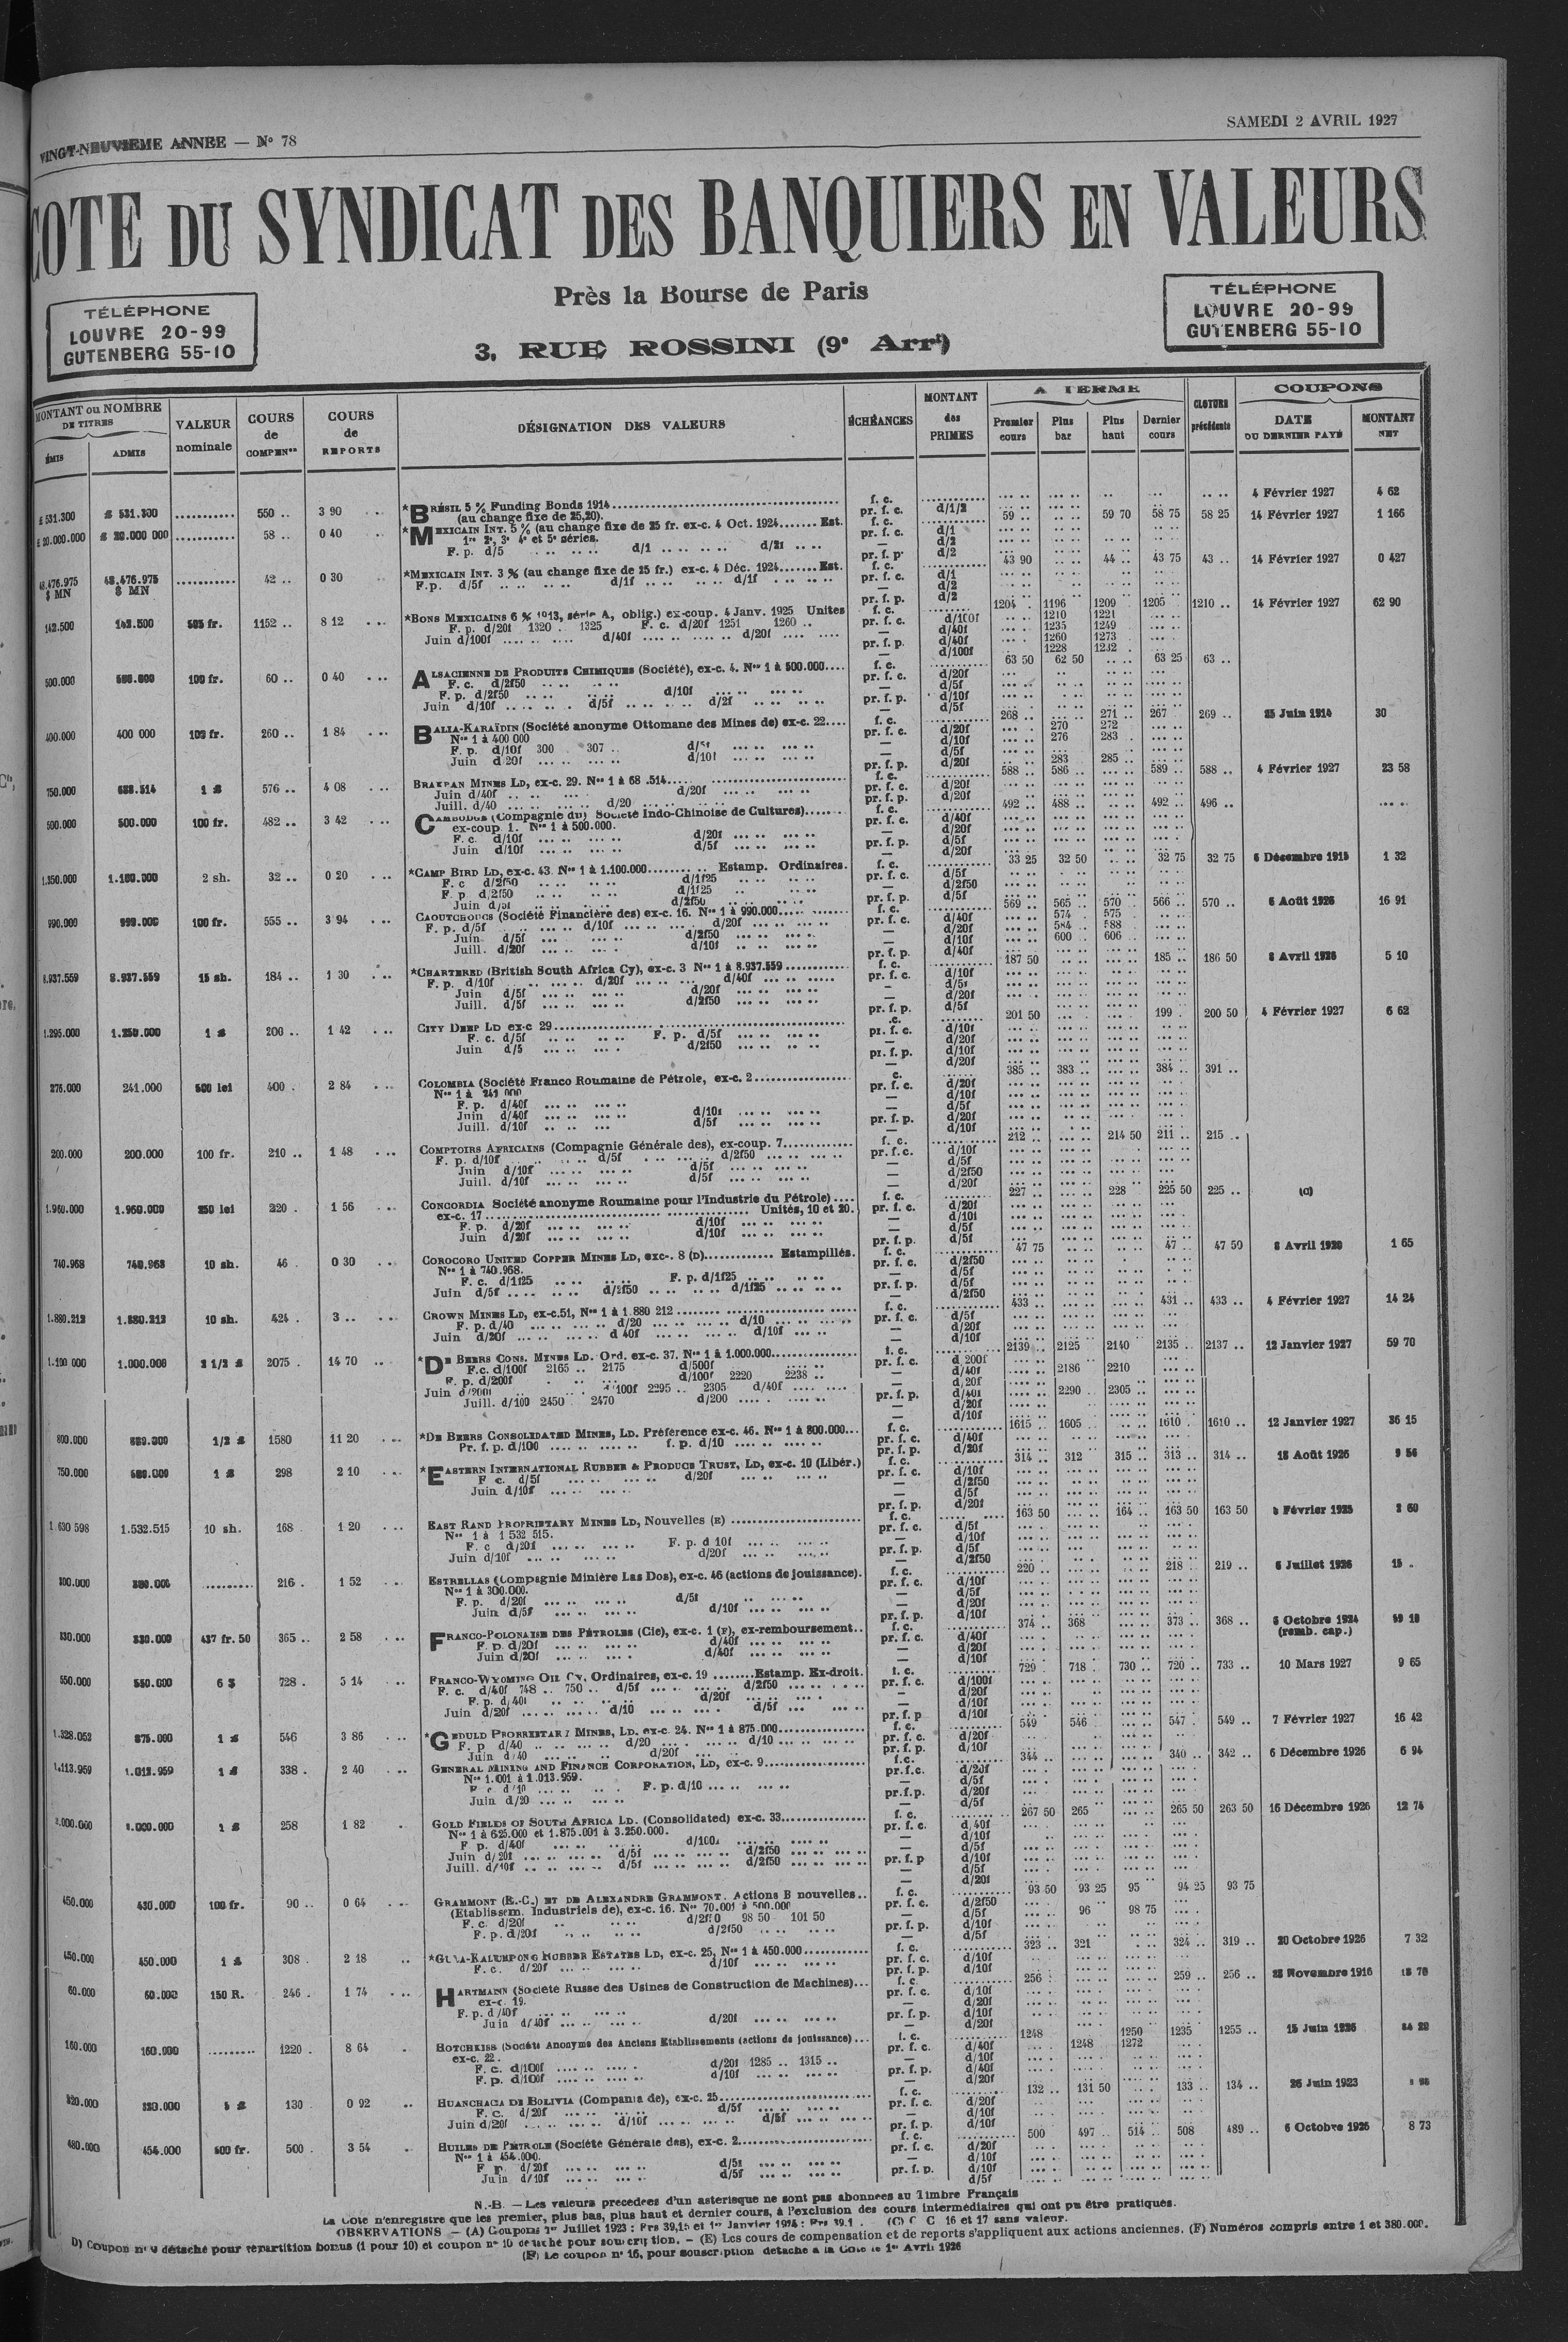 VINGT-NEUVIEME ANNEE — No 78
SAMEDI 2 AVRIL 1927
COTE DU SYNDICAT DES BANQUIERS EN VALEURS
Près la Bourse de Paris
3, RUE ROSSINI (9e Arrt)
TÉLÉPHONE
LOUVRE 20-99
GUTENBERG 55-10
TÉLÉPHONE
LOUVRE 20-99
GUTENBERG 55-10
MONTANT ou NOMBRE DE TITRES
ÉMIS ADMIS
VALEUR nominale
COURS de COMPENon
COURS de REPORTS
DÉSIGNATION DES VALEURS
ÉCHÉANCES
MONTANT des PRIMES
A TERME
Premier cours Plus bar Plus haut Dernier cours
CLOTURE précédente
COUPONS
DATE DU DERNIER PAYÉ MONTANT NET
£ 531.300 £ 531.300 550 .. 3 90 *BRÉSIL 5 % Funding Bonds 1914 f. c. 4 Février 1927 4 62
(au change fixe de 25,20). pr. f. c. d/1/2
£ 20.000.000 £ 20.000 000 58 .. 0 40 *MEXICAIN INT. 5 % (au change fixe de 25 fr. ex-c. 4 Oct. 1924 Est. f. c. 59 .. 59 70 58 75 58 25 14 Février 1927 1 166
1re 2e, 3e 4e et 5e séries. pr. f. c. d/1
F. p. d/5 d/1 d/21 d/2
48.476.975 $ MN 48.476.975 $ MN 42 .. 0 30 *MEXICAIN INT. 3 % (au change fixe de 25 fr.) ex-c. 4 Déc. 1924 Est. f. c. 43 90 44 .. 43 75 43 .. 14 Février 1927 0 427
F.p. d/5f d/1f d/1f pr. f. c. d/1
142.500 142.500 505 fr. 1152 .. 8 12 *BONS MEXICAINS 6 % 1913, série A, oblig.) ex-coup. 4 Janv. 1925 Unites f. c. 1204 1196 1209 1205 1210 .. 14 Février 1927 62 90
F. p. d/20f 1320 1325 F. c. d/20f 1251 1260 .. pr. f. c. d/100f 1210 1221
Juin d/100f d/40f d/20f d/40f 1235 1249
pr. f. p. d/40f 1260 1273
d/100f 1228 1232
500.000 500.000 100 fr. 60 .. 0 40 ALSACIENNE DE PRODUITS CHIMIQUES (Société), ex-c. 4. Nos 1 à 500.000 f. c. 63 50 62 50 63 25 63 ..
F. c. d/2f50 pr. f. c. d/20f
F. p. d/2f50 d/10f d/5f
Juin d/10f d/5f d/2f pr. f. p. d/10f
400.000 400 000 100 fr. 260 .. 1 84 BALIA-KARAÏDIN (Société anonyme Ottomane des Mines de) ex-c. 22 f. c. 268 .. 271 .. 267 269 .. 25 Juin 1914 30
Nos 1 à 400 000 pr. f. c. d/20f 270 272
F. p. d/10f 300 307 .. d/5f d/10f 276 283
Juin d/20f d/10f d/5f
pr. f. p. d/20f 283 285 ..
750.000 688.514 1 £ 576 .. 4 08 BRAKPAN MINES LD, ex-c. 29. Nos 1 à 68 .514 f. c. 588 .. 586 .. 589 .. 588 .. 4 Février 1927 23 58
Juin d/40f d/20f pr. f. c. d/20f
Juill. d/40 d/20 pr. f. p. d/20f
500.000 500.000 100 fr. 482 .. 3 42 CAMBODGE (Compagnie du) Societé Indo-Chinoise de Cultures) f. c. 492 .. 488 .. 492 .. 496 ..
ex-coup 1. Nos 1 à 500.000. pr. f. c. d/40f
F. c. d/10f d/20f d/20f
Juin d/10f d/5f pr. f. p. d/5f
1.350.000 1.100.000 2 sh. 32 .. 0 20 *CAMP BIRD LD, ex-c. 43 Nos 1 à 1.100.000 Estamp. Ordinaires. f. c. 33 25 32 50 32 75 32 75 6 Décembre 1915 1 32
F. c d/2f50 d/1f25 pr. f. c. d/5f
F. p d/2f50 d/1f25 d/2f50
Juin d/5f d/2f50 pr. f. p. d/5f
990.000 990.000 100 fr. 555 .. 3 94 CAOUTCHOUCS (Société Financière des) ex-c. 16. Nos 1 à 990.000 f. c. 569 .. 565 .. 570 .. 566 .. 570 .. 6 Août 1926 16 91
F. p. d/5f d/10f d/20f pr. f. c. d/40f 574 575
Juin d/5f d/2f50 d/20f 584 588
Juill. d/20f d/10f d/10f 600 606
8.937.559 8.937.559 15 sh. 184 .. 1 30 *CHARTERED (British South Africa Cy), ex-c. 3 Nos 1 à 8.937.559 f. c. 187 50 185 .. 186 50 8 Avril 1926 5 10
F. p. d/10f d/20f d/40f pr. f. c. d/10f
Juin d/5f d/20f d/5f
Juill. d/5f d/2f50 d/20f
1.295.000 1.250.000 1 £ 200 .. 1 42 CITY DEEP LD ex-c 29 201 50 199 200 50 4 Février 1927 6 62
F. c. d/5f F. p. d/5f pr. f. c. d/10f
Juin d/5 d/2f50 d/20f
276.000 241.000 500 lei 400 2 84 COLOMBIA (Société Franco Roumaine de Pétrole, ex-c. 2 385 .. 383 .. 384 391 ..
Nos 1 à 241 000 pr. f. c. d/20f
F. p. d/40f d/10f
Juin d/40f d/10f d/5f
Juill. d/10f d/5f pr. f. p. d/20f
200.000 200.000 100 fr. 210 .. 1 48 COMPTOIRS AFRICAINS (Compagnie Générale des), ex-coup. 7 f. c. 212 .. 214 50 211 .. 215 ..
F. p. d/10f d/5f d/2f50 pr. f. c. d/10f
Juin d/10f d/5f d/5f
Juill. d/10f d/5f d/2f50
1.960.000 1.960.000 250 lei 220 1 56 CONCORDIA Société anonyme Roumaine pour l'Industrie du Pétrole) f. c. 227 .. 228 225 50 225 .. (C)
ex-c. 17 Unités, 10 et 20. pr. f. c. d/20f
F. p. d/20f d/10f d/10f
Juin d/20f d/10f d/5f
740.968 740.968 10 sh. 46 0 30 COROCORO UNITED COPPER MINES LD, exc-. 8 (D) Estampillés. f. c. 47 75 47 .. 47 50 8 Avril 1920 1 65
Nos 1 à 740.968. pr. f. c. d/2f50
F. c. d/1f25 F. p. d/1f25 d/5f
Juin d/5f d/2f50 d/1f25 pr. f. p. d/5f
1.880.212 1.880.212 10 sh. 424 3 .. CROWN MINES LD, ex-c.51, Nos 1 à 1.880 212 f. c. 433 .. 431 .. 433 .. 4 Février 1927 14 24
F. p. d/40 d/20 d/10 pr. f. c. d/5f
Juin d/20f d 40f d/10f d/20f
1.100 000 1.000.000 2 1/2 £ 2075 14 70 *DE BEERS CONS. MINES LD. Ord. ex-c. 37. Nos 1 à 1.000.000 f. c. 2139 .. 2125 2140 2135 .. 2137 .. 12 Janvier 1927 59 70
F.c. d/100f 2165 .. 2175 d/500f pr. f. c. d 200f
F. p. d/200f d/100f 2220 2238 .. d/40f 2186 2210
Juin d/200f d/100f 2295 .. 2305 d/40f d/20f
Juill. d/100 2450 2470 d/200 pr. f. p. d/40f 2290 2305 ..
800.000 800.000 1/2 £ 1580 11 20 *DE BEERS CONSOLIDATED MINES, LD. Préférence ex-c. 46. Nos 1 à 800.000 f. c. 1615 1605 1610 1610 .. 12 Janvier 1927 36 15
Pr. f. p. d/100 f. p. d/10 pr. f. c. d/40f
750.000 1 £ 298 2 10 *EASTERN INTERNATIONAL RUBBER & PRODUCE TRUST, LD, ex-c. 10 (Libér.) f. c. 314 .. 312 315 .. 313 .. 314 .. 18 Août 1926 9 56
F c. d/5f d/20f pr. f. c. d/10f
Juin d/10f d/2f50
1.630 598 1.532.515 10 sh. 168 1 20 EAST RAND PROPRIETARY MINES LD, Nouvelles (E) f. c. 163 50 164 .. 163 50 163 50 Février 1925 2 60
Nos 1 à 1 532 515. pr. f. c. d/5f
F. c d/20f F. p. d 10f d/10f
Juin d/10f d/20f pr. f. p. d/5f
300.000 216 1 52 ESTRELLAS (Compagnie Minière Las Dos), ex-c. 46 (actions de jouissance). f. c. 220 218 219 .. 6 Juillet 1926 15
Nos 1 à 300.000. pr. f. c. d/10f
F. p. d/20f d/5f d/5f
Juin d/5f d/10f d/20f
330.000 330.000 437 fr. 50 365 .. 2 58 FRANCO-POLONAISE DES PÉTROLES (Cie), ex-c. 1 (F), ex-remboursement f. c. 374 368 373 368 .. 6 Octobre 1924
(remb. cap.)
F. p. d/20f d/40f pr. f. c. d/40f
Juin d/20f d/40f d/20f
550.000 550.000 6 $ 728 5 14 FRANCO-WYOMING OIL Cy, Ordinaires, ex-c. 19 Estamp. Ex-droit. f. c. 729 718 730 .. 720 733 .. 10 Mars 1927 9 65
F. c. d/40f 748 .. 750 .. d/5f d/2f50 pr. f. c. d/100f
F. p. d/40f d/20f d/20f
Juin d/20f d/10 d/5f d/10f
1.328.052 875.000 1 £ 546 3 86 *GEDULD PROPRIETARY MINES, LD. ex-c. 24. Nos 1 à 875.000 f. c. 549 546 547 549 .. 7 Février 1927 16 42
F. p d/40 d/20 d/10 pr. f. c. d/20f
Juin d/40 d/20f pr. f. p. d/10f
1.113.959 1.013.959 1 £ 338 2 40 GENERAL MINING AND FINANCE CORPORATION, LD, ex-c. 9 f.c. 344 340 342 .. 6 Décembre 1926 6 94
Nos 1.001 à 1.013.959. pr.f.c. d/20f
F. c. d/10 F. p. d/10 d/5f
Juin d/20 pr.f.p. d/20f
2.000.000 1 £ 258 1 82 GOLD FIELDS OF SOUTH AFRICA LD. (Consolidated) ex-c. 33 f. c. 267 50 265 265 50 263 50 16 Décembre 1926 12 74
Nos 1 à 625.000 et 1.875.001 à 3.250.000. pr. f. c. d/40f
F. p. d/40f d/100f d/10f
Juin d/20f d/5f d/2f50 d/5f
Juill. d/10f d/5f d/2f50 pr. f. p d/10f
450.000 430.000 100 fr. 90 .. 0 64 GRAMMONT (E.-C.) ET DE ALEXANDRE GRAMMONT. Actions B nouvelles f. c. 93 50 93 25 95 94 25 93 75
(Etablissem. Industriels de), ex-c. 16. Nos 70.001 à 500.000 pr. f. c. d/2f50
F. c. d/20f d/2f50 98 50 101 50 d/5f 96 98 75
F. p. d/20f d/2f50 pr. f. p. d/10f
450.000 450.000 1 £ 308 2 18 *GULA-KALUMPONG RUBBER ESTATES LD, ex-c. 25, Nos 1 à 450.000 f. c. 323 .. 321 324 .. 319 .. 20 Octobre 1926 7 32
F. c. d/20f d/10f pr. f. c. d/10f
60.000 60.000 150 R. 246 1 74 HARTMANN (Société Russe des Usines de Construction de Machines) f. c 256 259 .. 256 .. Novembre 1916
ex-c. 19. pr. f. c. d/10f
F. p. d/40f d/20f
Juin d/40f d/20f pr. f. p. d/10f
160.000 160.000 1220 8 64 HOTCHKISS (Société Anonyme des Anciens Etablissements (actions de jouissance) f. c. 1248 1250 1235 1255 .. 15 Juin 1926
ex-c. 22. pr. f. c. d/40f 1248 1272
F. c. d/100f d/20f 1285 .. 1315 .. d/10f
F. p. d/100f d/10f pr. f. p. d/40f
320.000 320.000 5 £ 130 0 92 HUANCHACA DE BOLIVIA (Compania de), ex-c. 25 f. c. 132 .. 131 50 133 .. 134 .. 26 Juin 1923
F. c. d/20f d/5f pr. f. c. d/20f
Juin d/20f d/10f d/5f d/10f
480.000 454.000 500 fr. 500 3 54 HUILES DE PÉTROLE (Société Générale des), ex-c. 2 f. c. 500 497 514 508 489 .. 6 Octobre 1926 8 73
Nos 1 à 454.000. pr. f. c. d/20f
F. p. d/20f d/5f d/10f
Juin d/10f d/5f pr. f. p. d/10f
d/5f
N.-B. — Les valeurs precedees d'un asterisque ne sont pas abonnees au Timbre Français
La Cote n'enregistre que les premier, plus bas, plus haut et dernier cours, à l'exclusion des cours intermédiaires qui ont pu être pratiqués.
OBSERVATIONS — (A) Coupons 1er Juillet 1923 : Frs 39,15 et 1er Janvier 1924 : Frs 39.1 . — (C) C C 16 et 17 sans valeur.
D) Coupon no 9 détaché pour répartition bonus (1 pour 10) et coupon no 10 détaché pour souscription. — (E) Les cours de compensation et de reports s'appliquent aux actions anciennes. (F) Numéros compris entre 1 et 380.000.
(F) Le coupon no 16, pour souscription détaché à la Cote le 1er Avril 1926